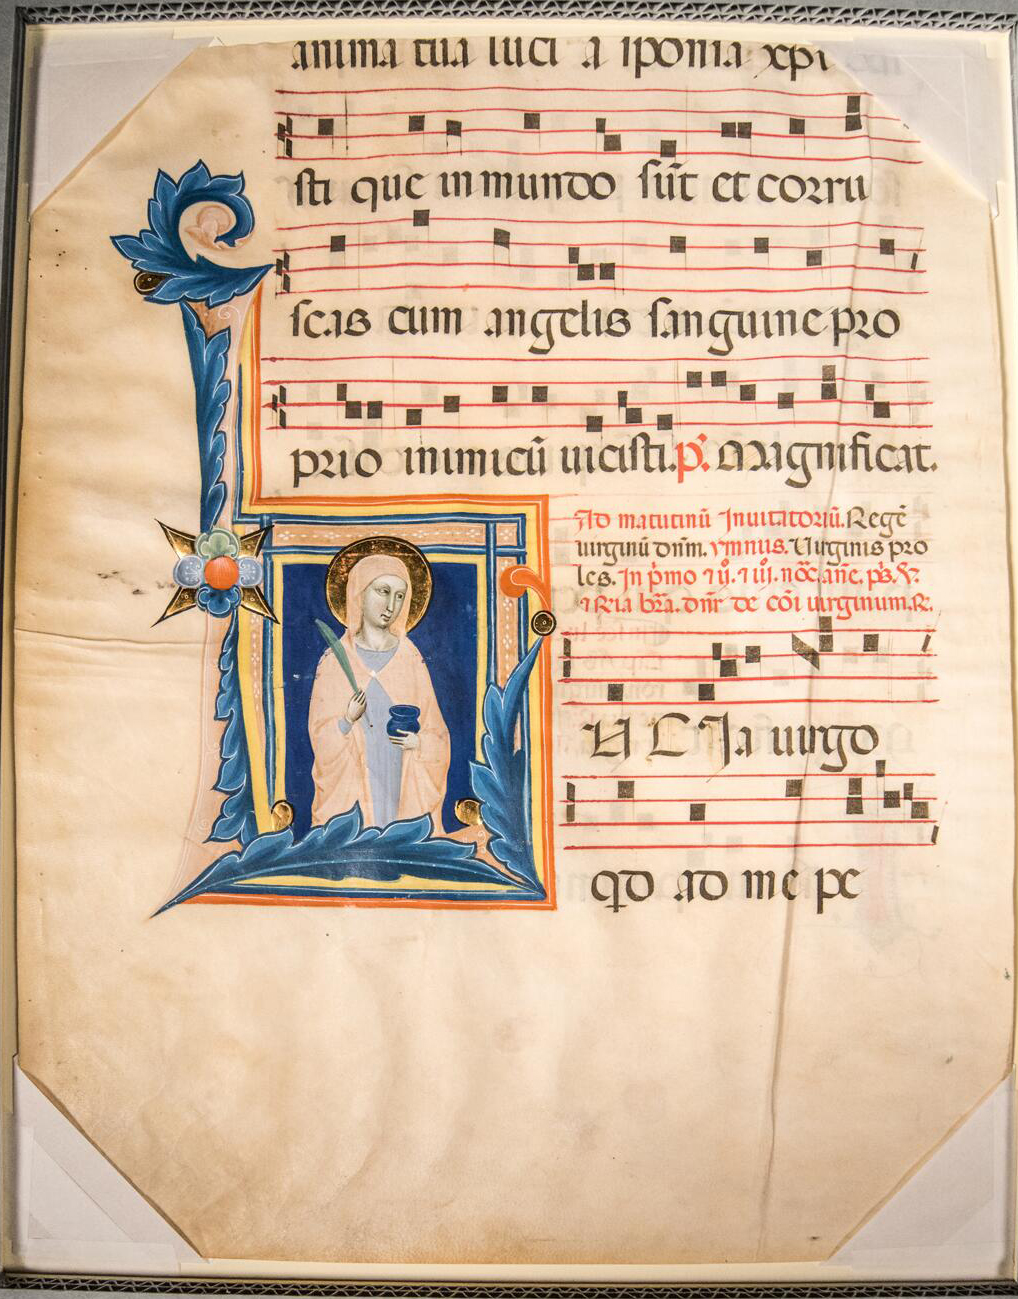 anima tua luci a sponsa xpi
sti que in mundo sūt et corru
scas cum angelis sanguine pro
prio inimicū uicisti. ps. Magnificat.
Ad matutinū Inuitatoriū. Regē
uirginū dnm. ymnus. Uirginis pro
les. In pmo
bra. dnr de cōi uirginum. R.
L Ia uirgo
qd ad me pe